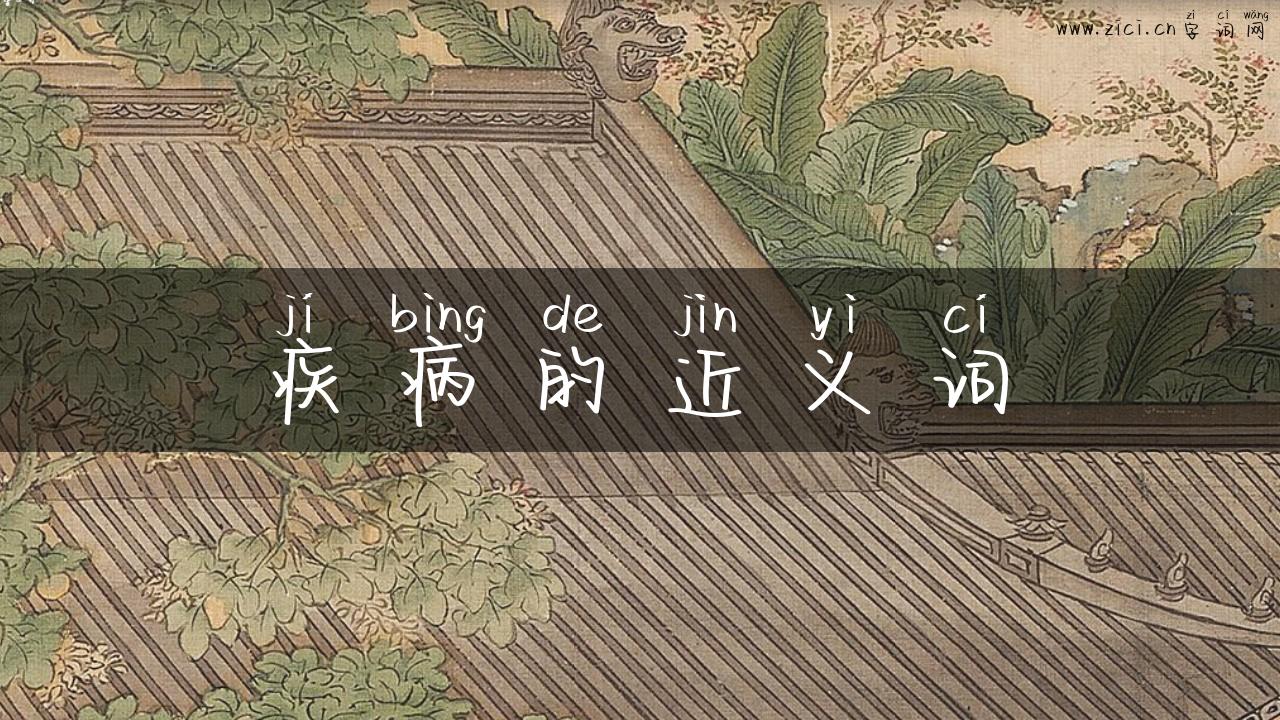 zì cí wǎng
www.zici.cn 字词网
jí bìng de jìn yì cí
疾病的近义词